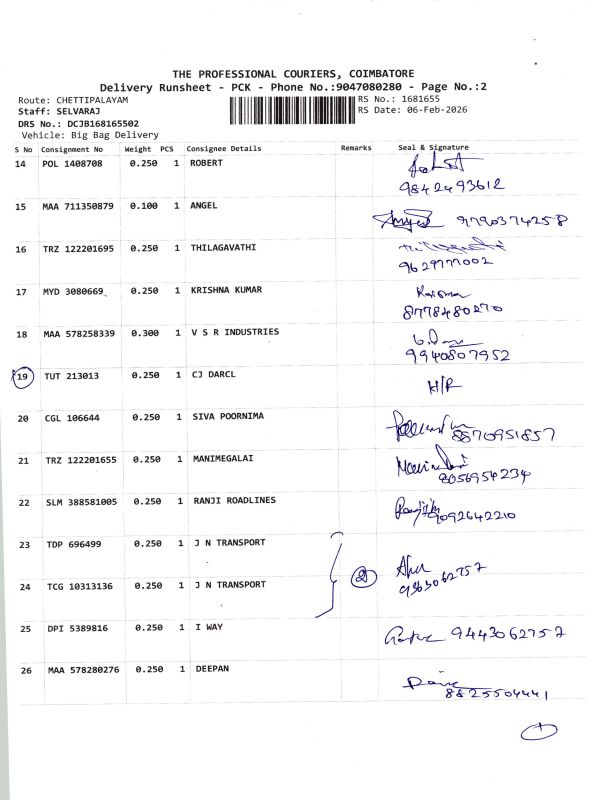 THE PROFESSIONAL COURIERS, COIMBATORE
Delivery Runsheet - PCK - Phone No.:9047080280 - Page No.:2
Route: CHETTIPALAYAM RS No.: 1681655
Staff: SELVARAJ RS Date: 06-Feb-2026
DRS No.: DCJB168165502
Vehicle: Big Bag Delivery
S No Consignment No Weight PCS Consignee Details Remarks Seal & Signature
14 POL 1408708 0.250 1 ROBERT
9842493612
15 MAA 711350879 0.100 1 ANGEL
9790374258
16 TRZ 122201695 0.250 1 THILAGAVATHI
9629777002
17 MYD 3080669 0.250 1 KRISHNA KUMAR
8778480270
18 MAA 578258339 0.300 1 V S R INDUSTRIES
9940807952
19 TUT 213013 0.250 1 CJ DARCL H/R
20 CGL 106644 0.250 1 SIVA POORNIMA
8870951857
21 TRZ 122201655 0.250 1 MANIMEGALAI
8056954234
22 SLM 388581005 0.250 1 RANJI ROADLINES
9092642210
23 TDP 696499 0.250 1 J N TRANSPORT
2
24 TCG 10313136 0.250 1 J N TRANSPORT
25 DPI 5389816 0.250 1 I WAY 9443062757
26 MAA 578280276 0.250 1 DEEPAN
8825504441